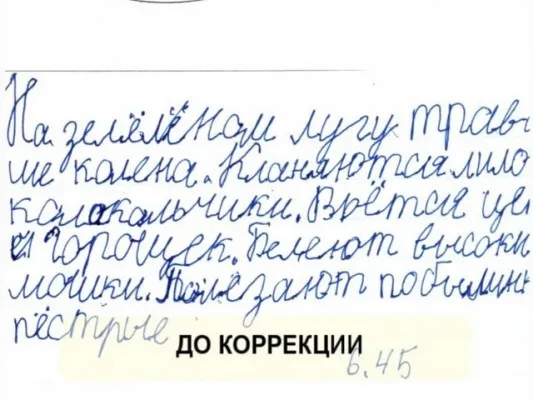 На зелёлёном лугу трав
ше колена. Кланяются лило
колокольчики. Вьётся це
й горошек. Белеют высоки
машки. Полезают по былин
пёстрые
ДО КОРРЕКЦИИ
6.45